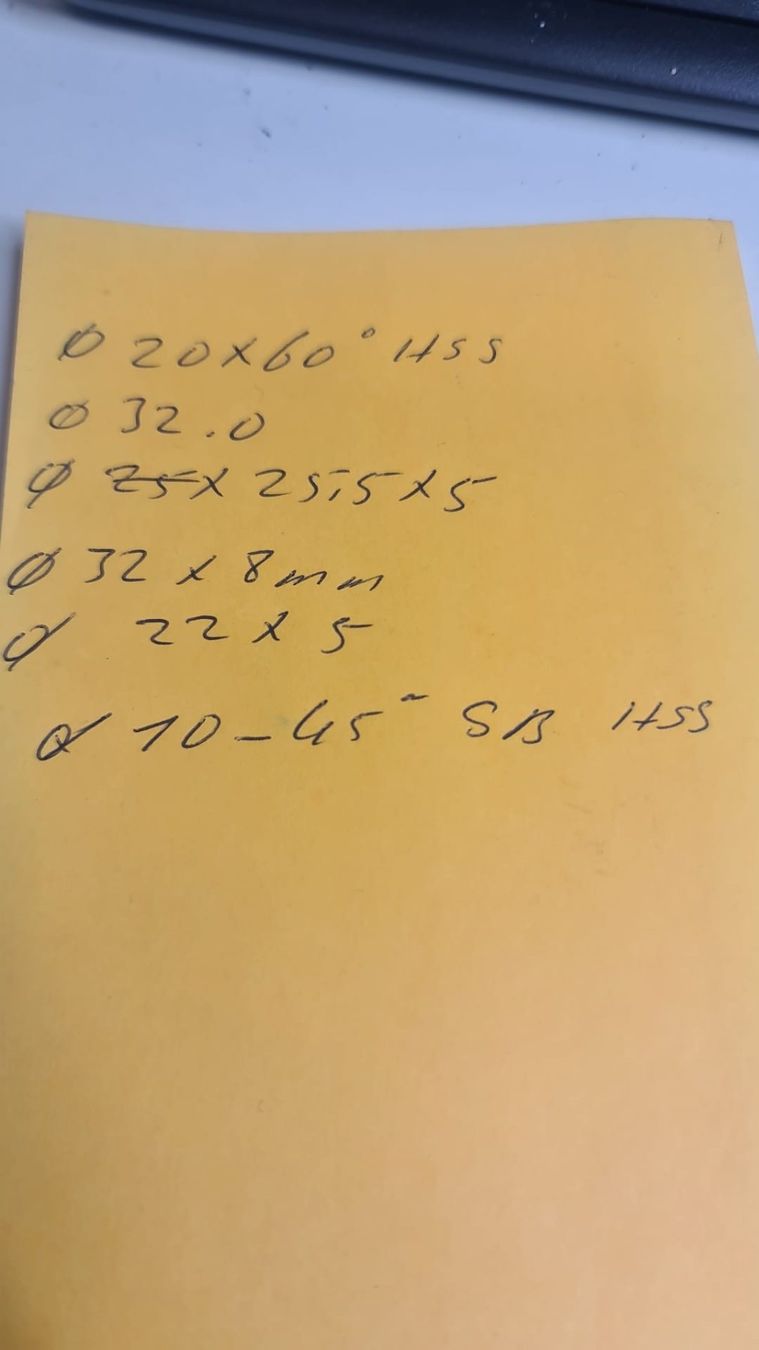 Ø 20x60° HSS
Ø 32.0
Ø 75x 25,5x5
Ø 32 x 8mm
Ø 22 x 5
Ø 10-45° SB HSS